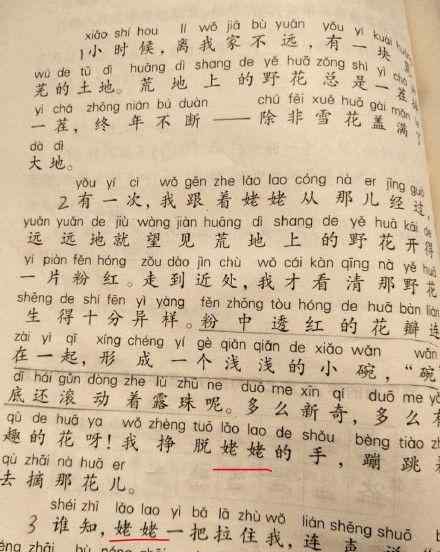 xiǎo shí hou lí wǒ jiā bù yuǎn yǒu yí kuài
1 小时候，离我家不远，有一块
wú de tǔ dì huāng dì shang de yě huā zǒng shì yì chá
芜的土地。荒地上的野花总是一茬
yì chá zhōng nián bù duàn chú fēi xuě huā gài mǎn
一茬，终年不断——除非雪花盖满了
dà dì
大地。
yǒu yí cì wǒ gēn zhe lǎo lao cóng nà er jīng guò
2 有一次，我跟着姥姥从那儿经过，
yuǎn yuǎn de jiù wàng jiàn huāng dì shang de yě huā kāi de
远远地就望见荒地上的野花开得
yí piàn fěn hóng zǒu dào jìn chù wǒ cái kàn qīng nà yě huā
一片粉红。走到近处，我才看清那野花
shēng de shí fēn yì yàng fěn zhōng tòu hóng de huā bàn lián
生得十分异样。粉中透红的花瓣连
zài yì qǐ xíng chéng yí gè qiǎn qiǎn de xiǎo wǎn wǎn
在一起，形成一个浅浅的小碗，“碗”
dǐ hái gǔn dòng zhe lù zhū ne duō me xīn qí duō me yǒu
底还滚动着露珠呢。多么新奇，多么有
qù de huā ya wǒ zhèng tuō lǎo lao de shǒu bèng tiào zhe
趣的花呀！我挣脱姥姥的手，蹦跳着
qù zhāi nà huā er
去摘那花儿。
shéi zhī lǎo lao yì bǎ lā zhù wǒ lián shēng shuō
3 谁知，姥姥一把拉住我，连声说